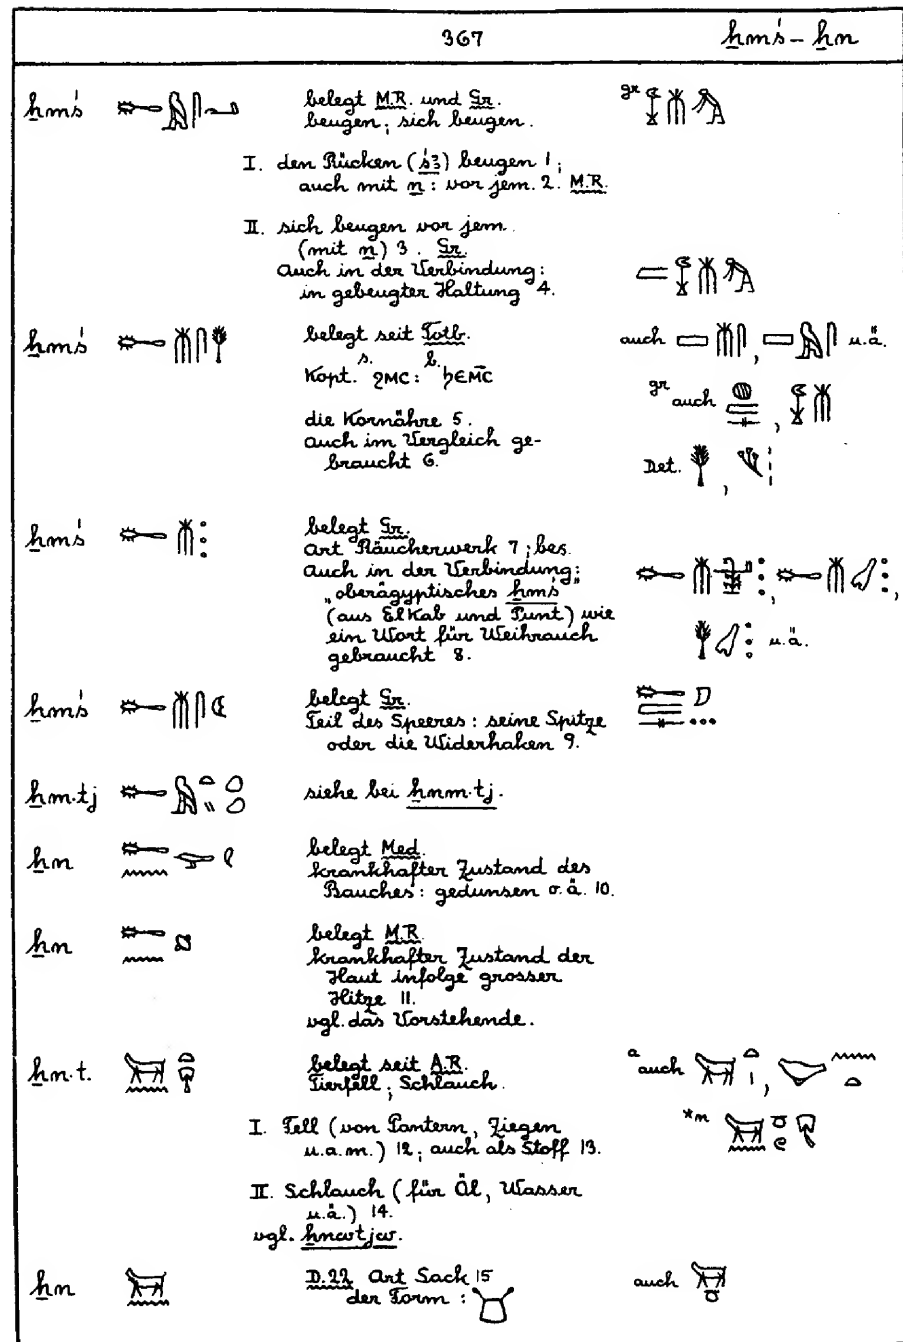 367 ẖmś – ẖn
ẖmś belegt M.R. und Gr.
beugen; sich beugen. gr
I. den Rücken (śꜣ) beugen 1;
auch mit n: vor jem. 2. M.R.
II. sich beugen vor jem.
(mit n) 3. Gr.
Auch in der Verbindung:
in gebeugter Haltung 4.
ẖmś belegt seit Totb. auch , u.ä.
Kopt. s. ϩⲙⲥ: b. ϧⲉⲙ̄ⲥ̄
gr auch ,
die Kornähre 5.
auch im Vergleich ge-
braucht 6. Det. ,
ẖmś belegt Gr.
Art Räucherwerk 7; bes.
Auch in der Verbindung:
„oberägyptisches ẖmś“ , ,
(aus ElKab und Punt) wie
ein Wort für Weihrauch
gebraucht 8. u.ä.
ẖmś belegt Gr.
Teil des Speeres: seine Spitze
oder die Widerhaken 9.
ẖm·tj siehe bei ẖnm·tj.
ẖn belegt Med.
krankhafter Zustand des
Bauches: gedunsen o.ä. 10.
ẖn belegt M.R.
krankhafter Zustand der
Haut infolge grosser
Hitze 11.
vgl. das Vorstehende.
ẖn·t. belegt seit A.R. a auch ,
Tierfell; Schlauch.
I. Fell (von Pantern, Ziegen *n
u.a.m.) 12; auch als Stoff 13.
II. Schlauch (für Öl, Wasser
u.ä.) 14.
vgl. ẖnwtjw.
ẖn D.22 Art Sack 15 auch
der Form: